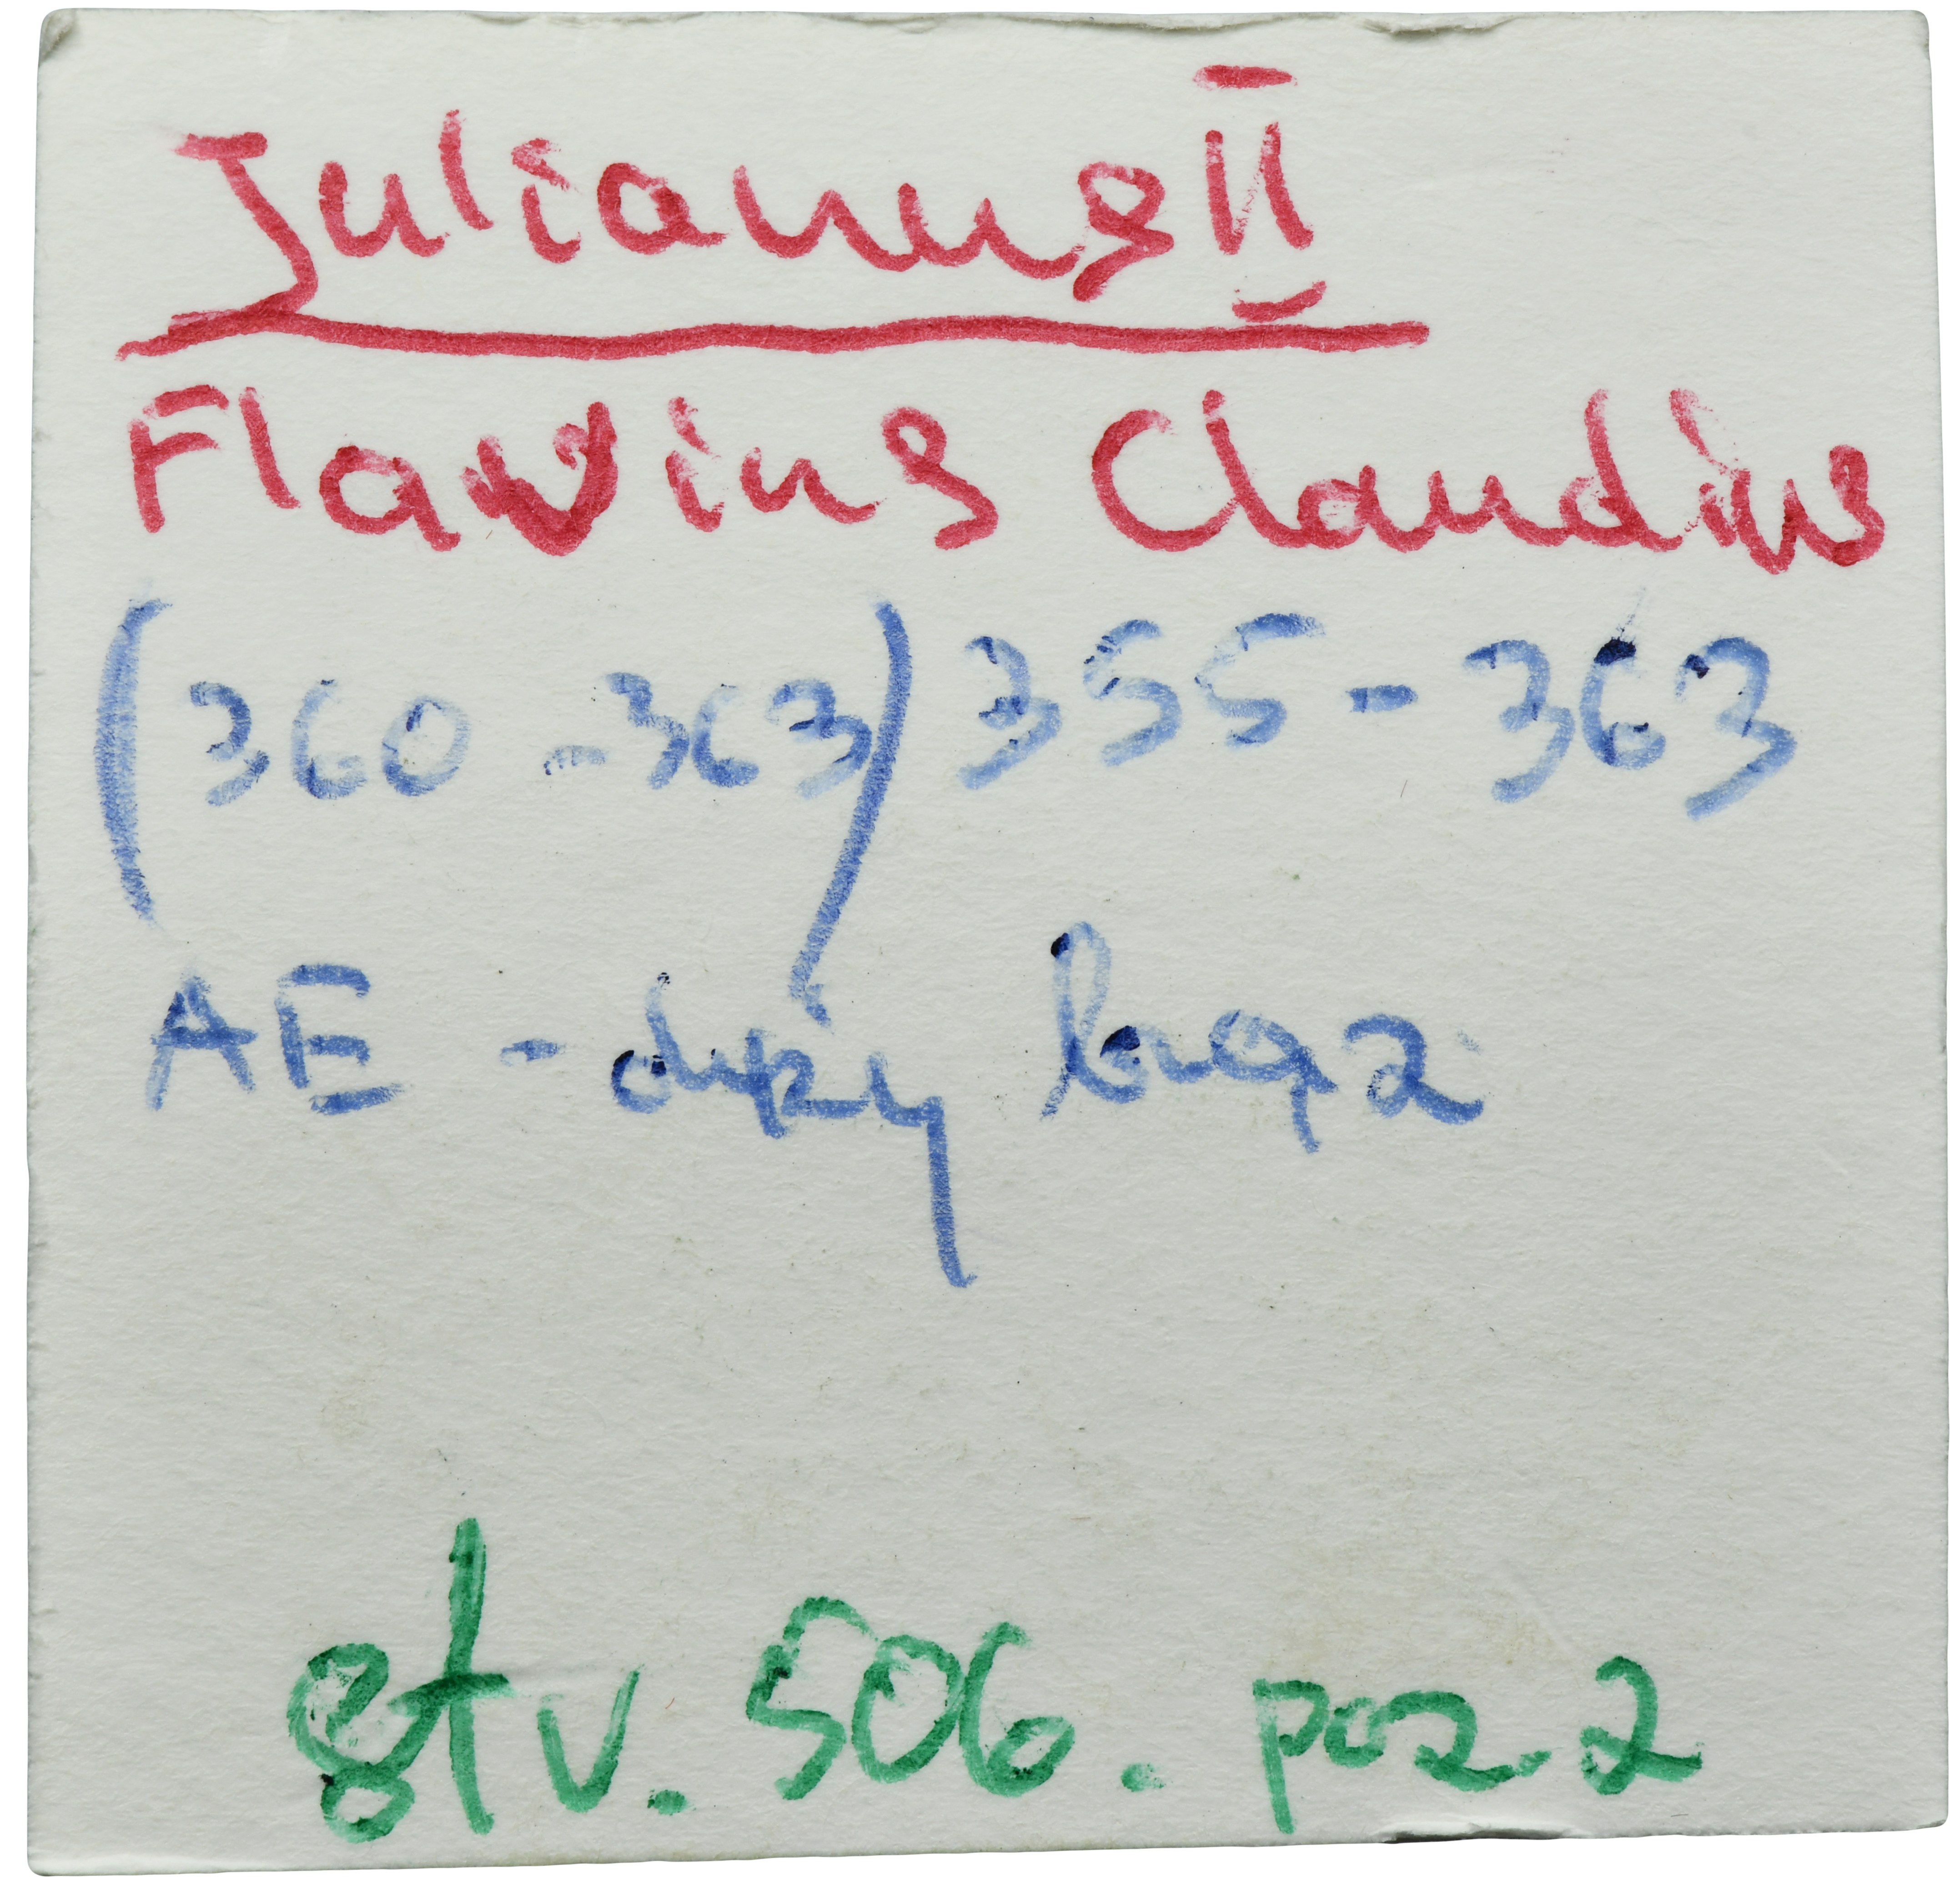 Julianus II
Flavius Claudius
(360 - 363) 355 - 363
AE - duży brąz
str. 506. poz. 2